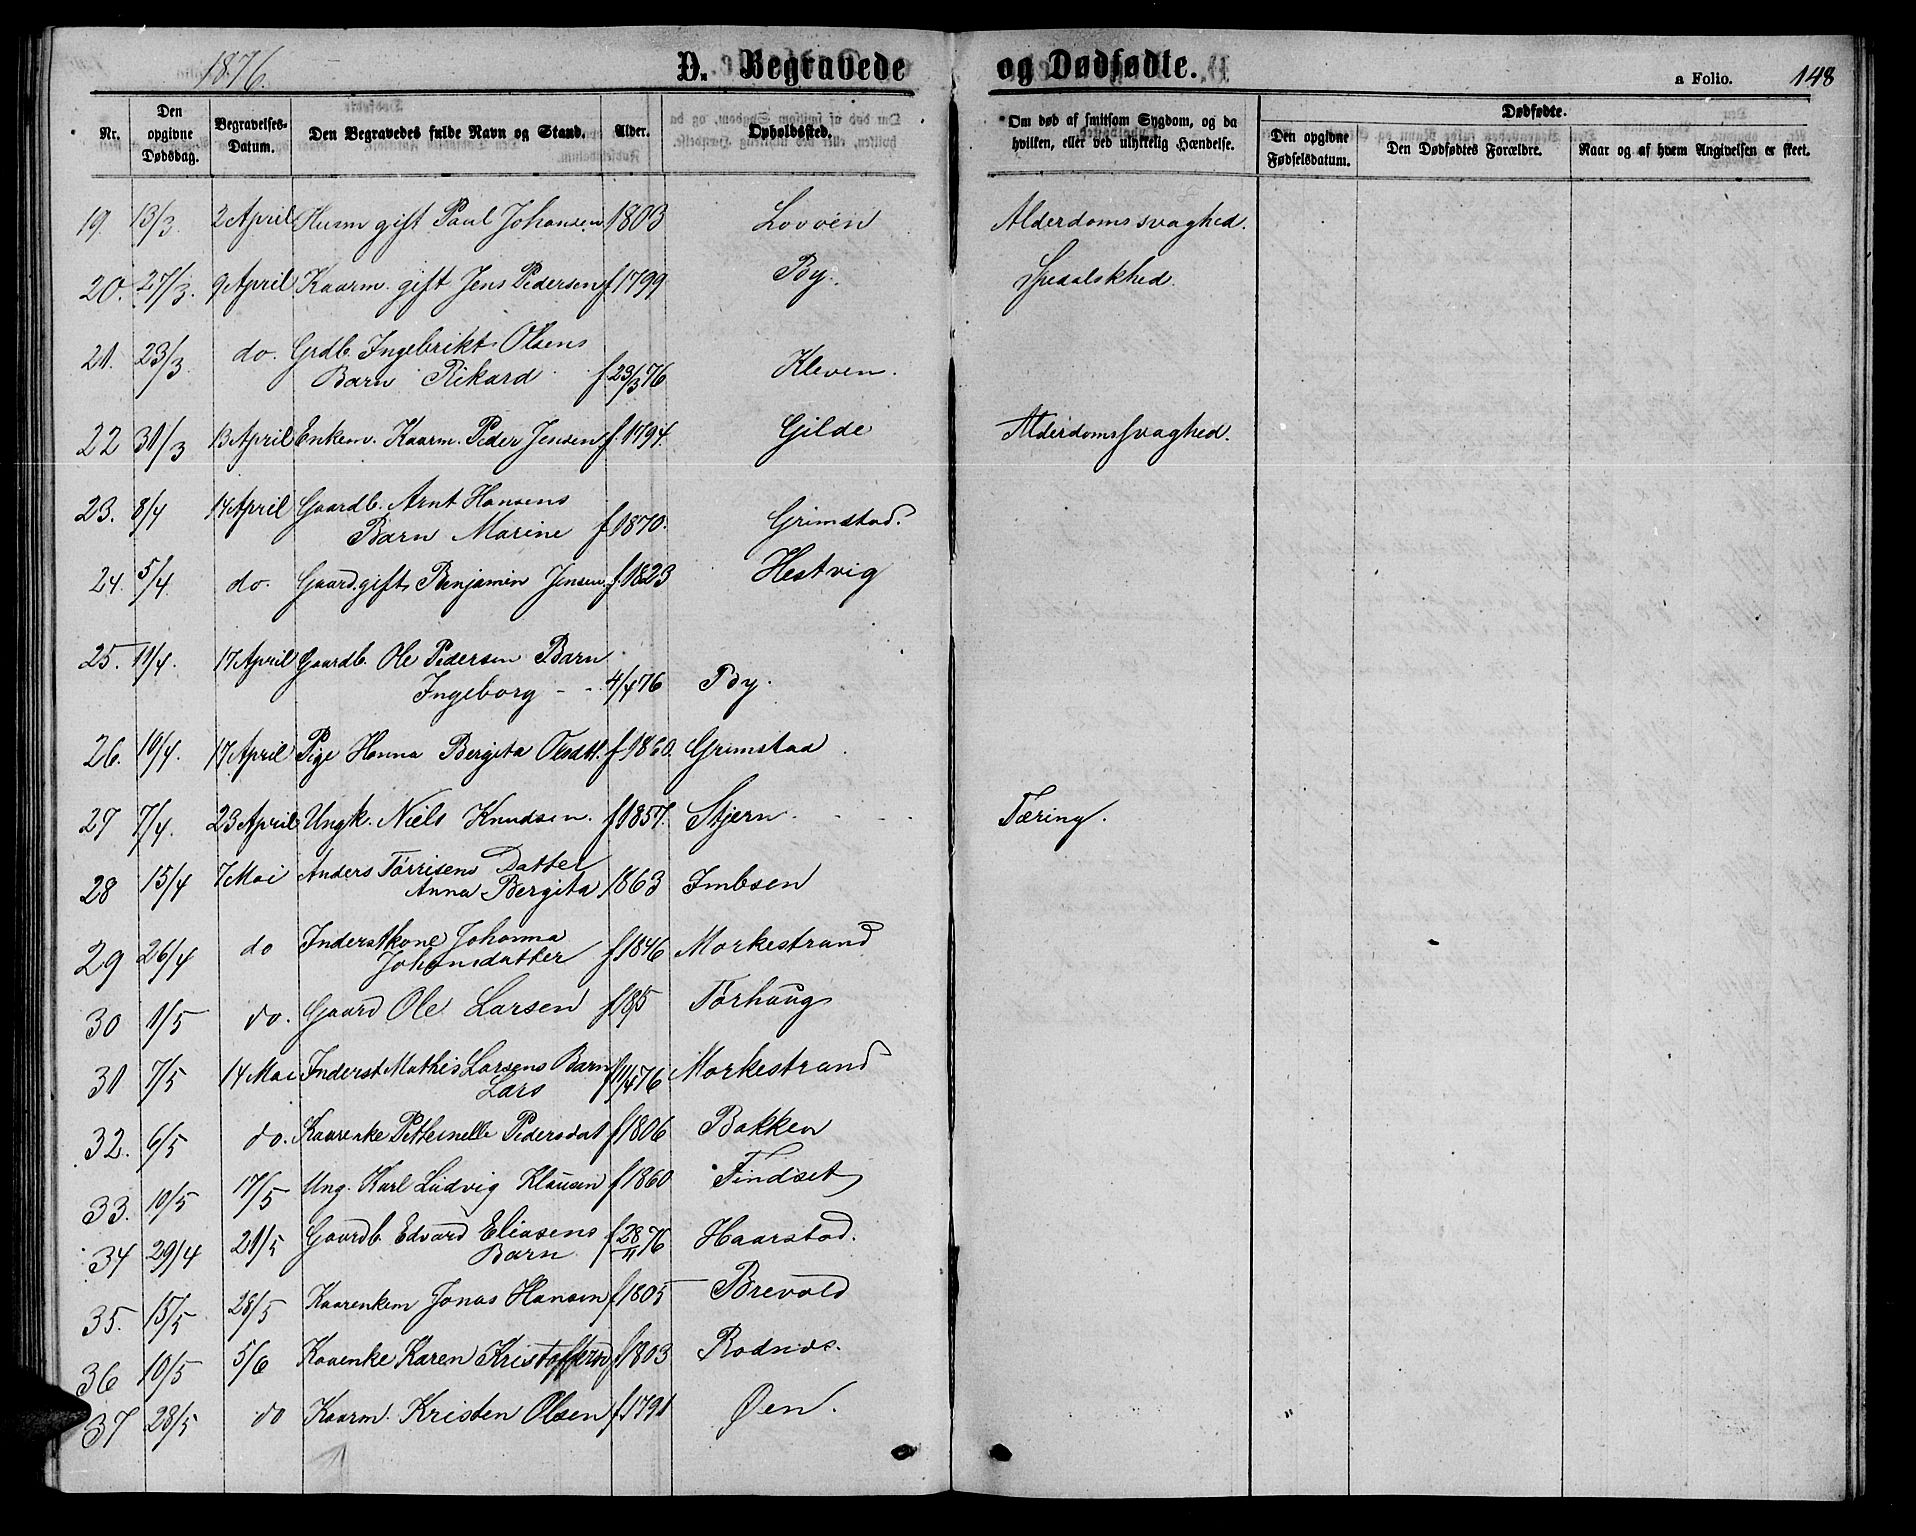 1876.
D. Begravede og Dødfødte.
a Folio. 148
Nr. Den opgivne Dødsdag. Begravelses-Datum. Den Begravedes fulde Navn og Stand. Alder. Opholdssted. Om død af smitsom Sygdom, og da hvilken, eller ved ulykkelig Hændelse. Dødfødte. Den opgivne Fødselsdatum. Den Dødfødtes Forældre. Naar og af hvem Angivelsen er skeet.
19. 13/3 2 April Husm gift Paul Johansen 1803 Lovøen Alderdomssvaghed.
20. 27/3. 9 April Kaarm. gift Jens Pedersen f 1799 By. Spedalskhed.
21. 23/3 do. Grdb. Ingebrikt Olsens
Barn Rikard f. 23/3 76 Kleven.
22 31/3 13 April Enkem. Kaarm. Peder Jensen f. 1794. Gilde Alderdomssvaghed.
23. 8/4 14 April Gaardb. Arnt Hansens
Barn Marine f 1870. Grimstad.
24. 5/4 do. Gaard. gift Benjamin Jensen f. 1823 Hestvig
25. 11/4. 17 April Gaardb. Ole Pedersen Barn
Ingeborg - - 4/4 76 By.
26. 10/4. 17 April Pige Hanna Bergita Olsdtt. f 1860. Grimstad
27 7/4. 23 April Ungk. Niels Knudsen. f 1857. Stjern Tæring.
28 15/4 7 Mai Anders Tørrisens Datter
Anna Bergita 1863 Imbsen
29 26/4 do Inderstkone Johanna
Johansdatter f 1846 Morkestrand
30 1/5 do. Gaard Ole Larsen Tørhaug
31 7/5 14 Mai Inderst Mathis Larsens Barn
Lars f 11/4 76 Morkestrand
32. 6/5 do. Kaarenke Petternelle Pedersdat f 1806 Bakken
33. 10/5 17/5 Ung. Karl Ludvig Klausen f 1860 Findset
34 29/4 21/5 Gaardb Edvard Eliasens
Barn f 28/11 76 Haarstad.
35. 15/5 28/5 Kaarenkem Jonas Hansen f 1805 Brevold
36 10/5 5/6 Kaaenke Karen f 1803
37 28/5 do Kaarm. Kristen Olsen f. 1791 Øen.